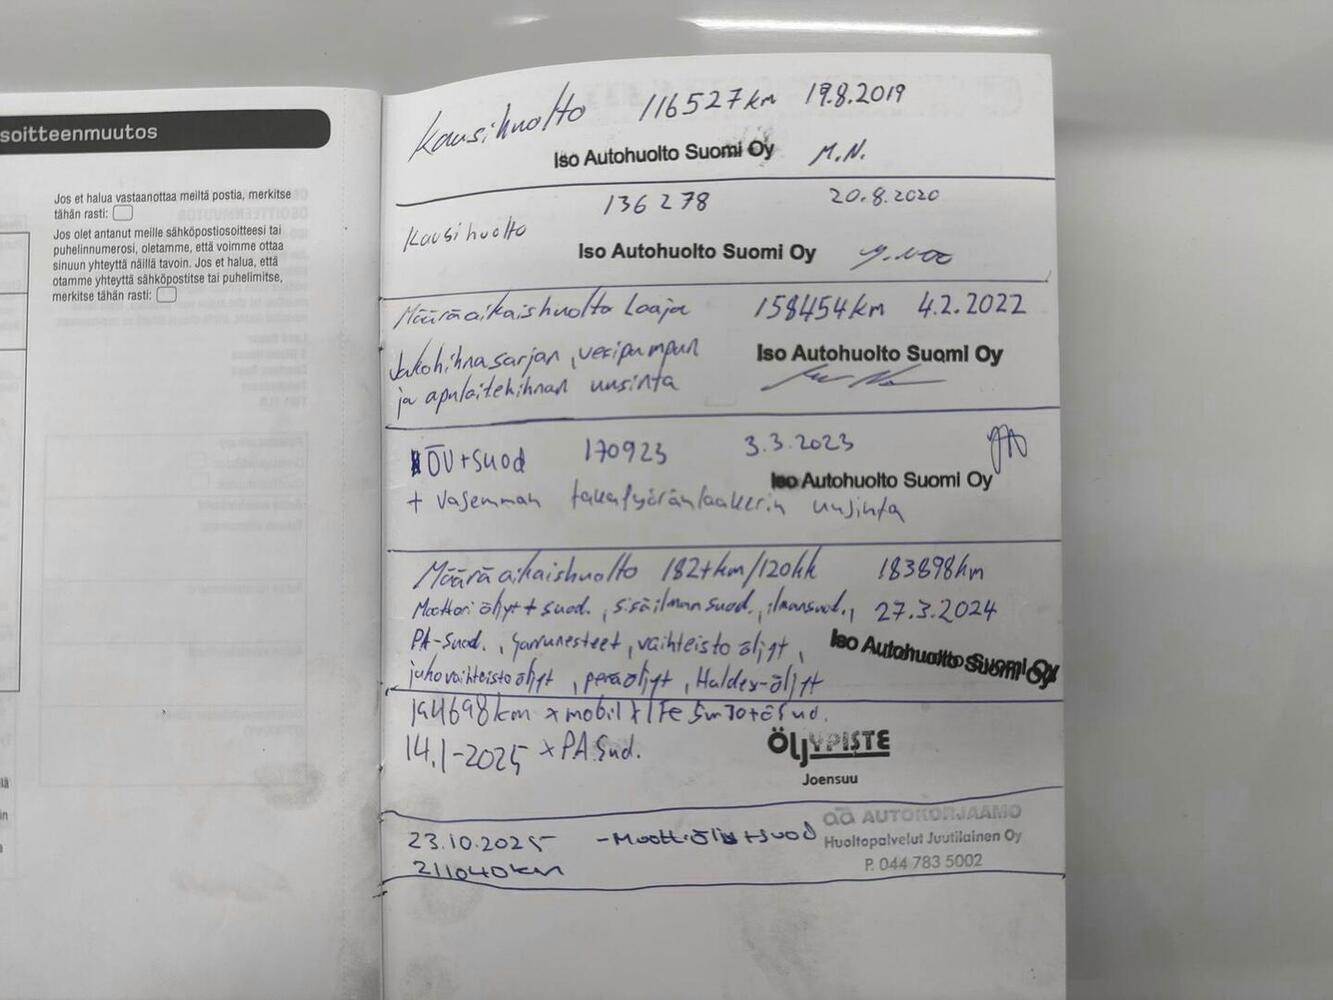 soitteenmuutos
Jos et halua vastaanottaa meiltä postia, merkitse
tähän rasti:
Jos olet antanut meille sähköpostiosoitteesi tai
puhelinnumerosi, oletamme, että voimme ottaa
sinuun yhteyttä näillä tavoin. Jos et halua, että
otamme yhteyttä sähköpostitse tai puhelimitse,
merkitse tähän rasti:
Kausihuolto 116527km 19.8.2019
Iso Autohuolto Suomi Oy M.N.
136278 20.8.2020
Kausihuolto
Iso Autohuolto Suomi Oy
Määräaikaishuolto Laaja 158454km 4.2.2022
Jakohihnasarjan, vesipumpun
Iso Autohuolto Suomi Oy
ja apulaitehihnan uusinta
ÖV+suod 170923 3.3.2023
Iso Autohuolto Suomi Oy
+ vasemman takapyöränlaakerin uusinta
Määräaikaishuolto 182tkm/120kk 183898km
Moottoriöljyt + suod., sisäilmansuod., ilmansuod., 27.3.2024
PA-suod., jarrunesteet, vaihteistoöljyt,
Iso Autohuolto Suomi Oy
jakovaihteistoöljyt, peräöljyt, Haldex-öljyt
194698km x mobil 1 Fe 5w30+ösud.
14.1-2025 x PA.sud.
ÖLJYPISTE
Joensuu
aa AUTOKORJAAMO
23.10.2025 -Moottoriöljy+suod
Huoltopalvelut Juutilainen Oy
211040km
P. 044 783 5002